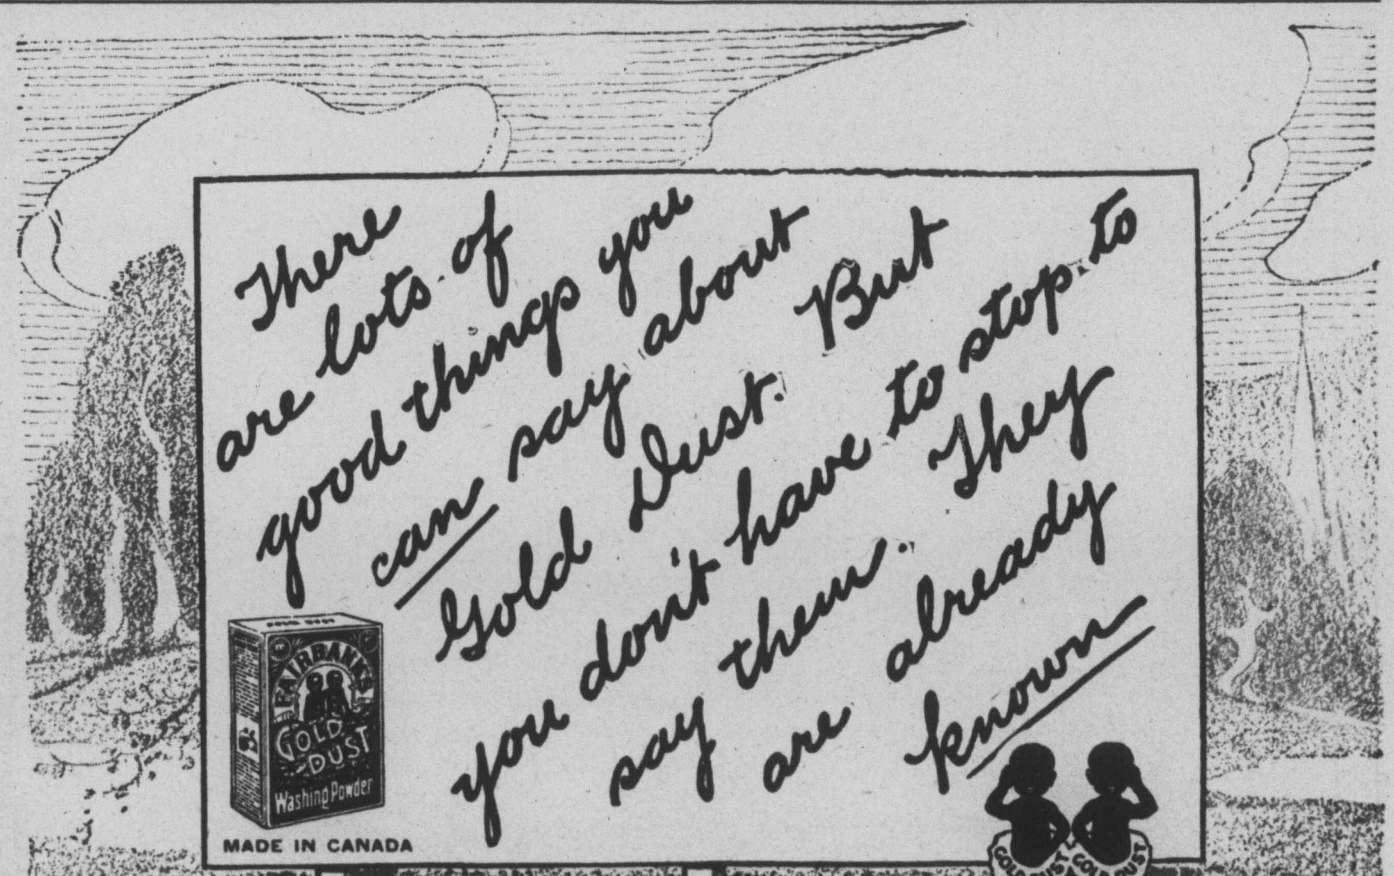 There
are lots of
good things you
can say about
Gold Dust. But
you don't have to stop to
say them. They
are already
known
FAIRBANK'S
GOLD
DUST
Washing Powder
MADE IN CANADA
GOLD DUST
GOLD DUST